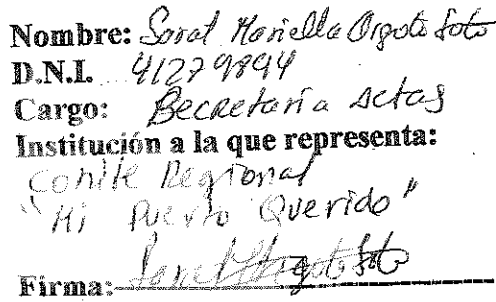 Nombre: Sarat Mariella Orgoto Soto
D.N.I. 41279894
Cargo: Becretaria Actas
Institución a la que representa:
Comite Regional
"Mi Puerto Querido"
Firma: Soto